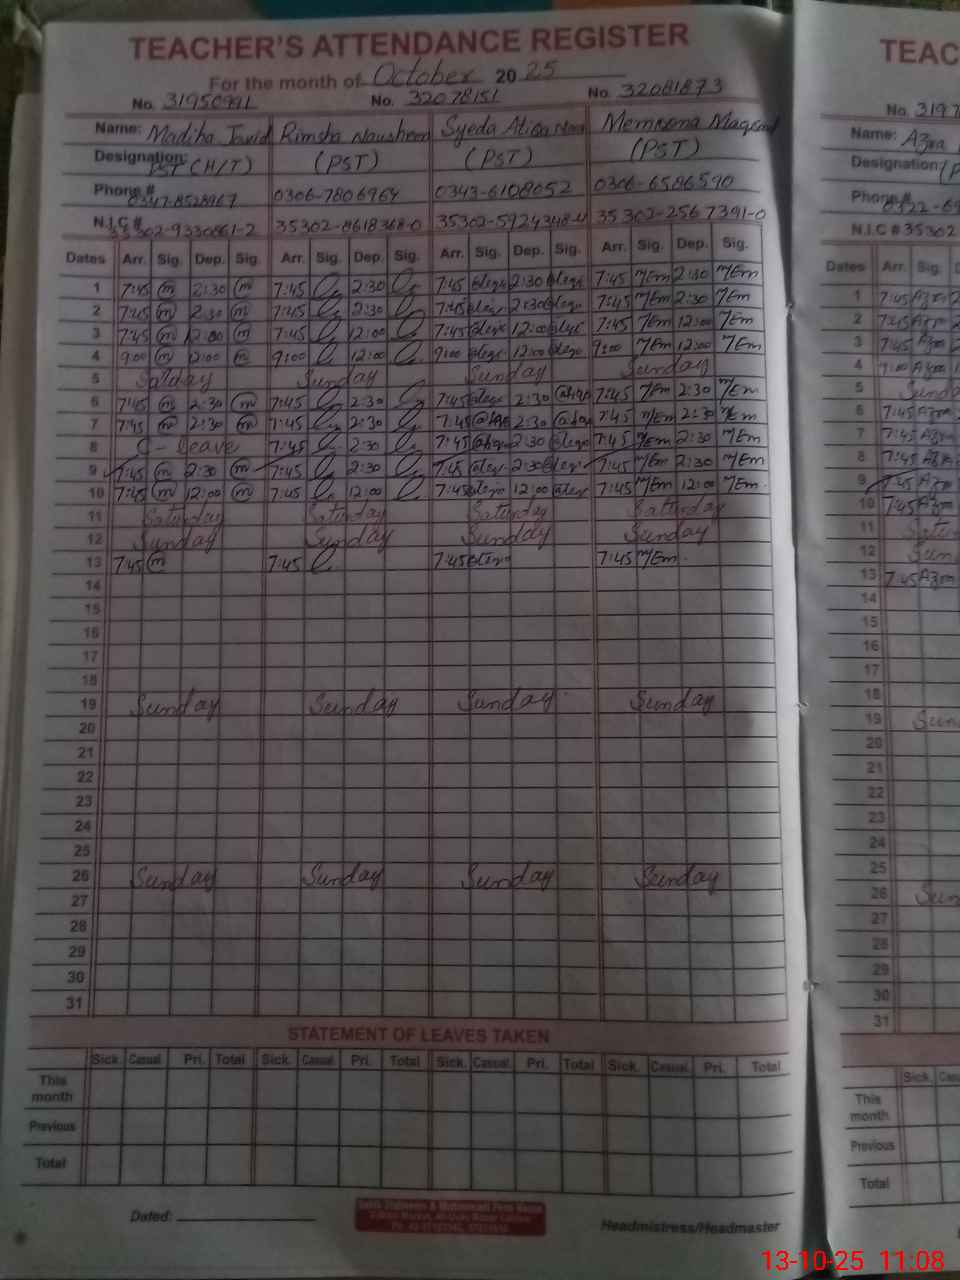 TEACHER'S ATTENDANCE REGISTER
For the month of October 2025
No. 31950991 No. 32078151 No. 32081873
Name: Madiha Javid Rimsha Nausheen Syeda Memoona
Designation: PST (H/T) (PST) (PST) (PST)
Phone # 0347-8528967 0306-7806964 0343-6108052 0306-6586590
N.I.C # 35302-9330861-2 35302-8618368-0 35302-5924348-4 35302-2567391-0
Dates Arr. Sig. Dep. Sig. Arr. Sig. Dep. Sig. Arr. Sig. Dep. Sig. Arr. Sig. Dep. Sig.
1 7:45 m 2:30 m 7:45 2:30 7:45 2:30 7:45 MEm 2:30 MEm
2 7:45 m 2:30 m 7:45 2:30 7:45 2:30 7:45 MEm 2:30 MEm
3 7:45 m 12:00 m 7:45 12:00 7:45 12:00 7:45 MEm 12:00 MEm
4 9:00 m 12:00 m 9:00 12:00 9:00 12:00 9:00 MEm 12:00 MEm
5 Sunday Sunday Sunday
6 7:45 m 2:30 m 7:45 2:30 7:45 2:30 7:45 MEm 2:30 MEm
7 7:45 m 2:30 m 7:45 2:30 7:45 2:30 7:45 MEm 2:30 MEm
8 C - Leave 7:45 2:30 7:45 2:30 7:45 MEm 2:30 MEm
9 7:45 m 2:30 m 7:45 2:30 7:45 2:30 7:45 MEm 2:30 MEm
10 7:45 m 12:00 m 7:45 12:00 7:45 12:00 7:45 MEm 12:00 MEm
11 Saturday Saturday Saturday Saturday
12 Sunday Sunday Sunday Sunday
13 7:45 m 7:45 7:45 7:45 MEm
14
15
16
17
18
19 Sunday Sunday Sunday Sunday
20
21
22
23
24
25
26 Sunday Sunday Sunday Sunday
27
28
29
30
31
STATEMENT OF LEAVES TAKEN
Sick. Casual Pri. Total Sick. Casual Pri. Total Sick. Casual Pri. Total Sick. Casual Pri. Total
This month
Previous
Total
Dated:
Headmistress/Headmaster
TEAC
No. 3197
Name: Azra
Designation:
Phone # 0322-6
N.I.C # 35302
Dates Arr. Sig.
1 7:45 Azra
2 7:45 Azra
3 7:45 Azra
4 9:00 Azra
5 Sund
6 7:45 Azra
7 7:45 Azra
8 7:45 Azra
9 7:45 Azra
10 7:45 Azra
11 Satu
12 Sun
13 7:45 Azra
14
15
16
17
18
19 Sun
20
21
22
23
24
25
26 Sun
27
28
29
30
31
Sick. Cas
This month
Previous
Total
13-10-25 11:08